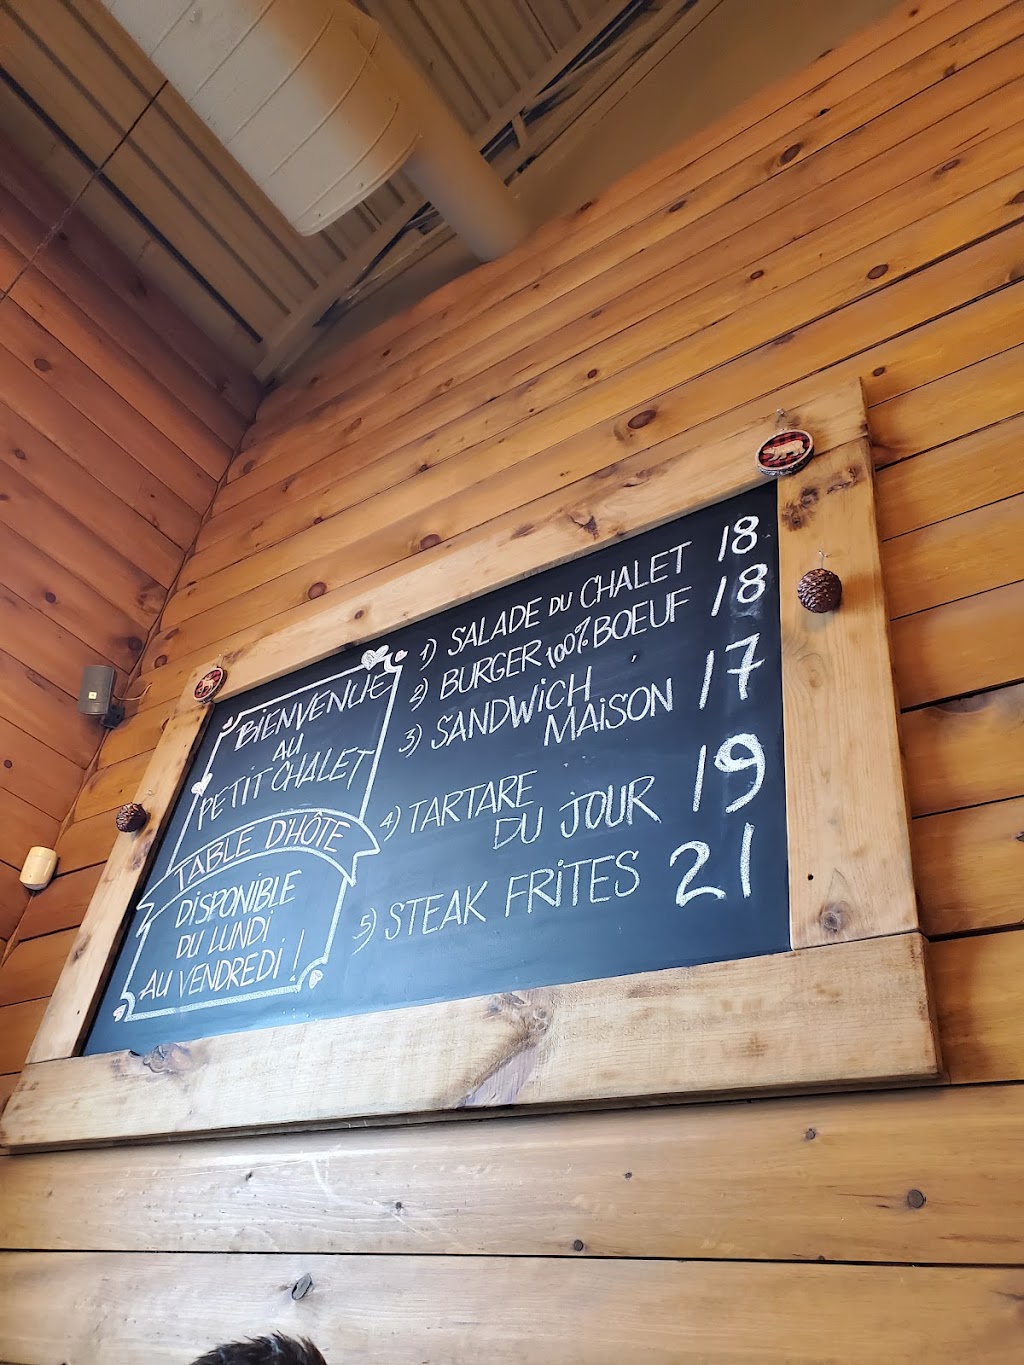 BIENVENUE
AU
PETIT CHALET
TABLE D'HÔTE
DISPONIBLE
DU LUNDI
AU VENDREDI !
1) SALADE DU CHALET 18
2) BURGER 100% BOEUF 18
3) SANDWICH
MAISON 17
4) TARTARE
DU JOUR 19
5) STEAK FRITES 21